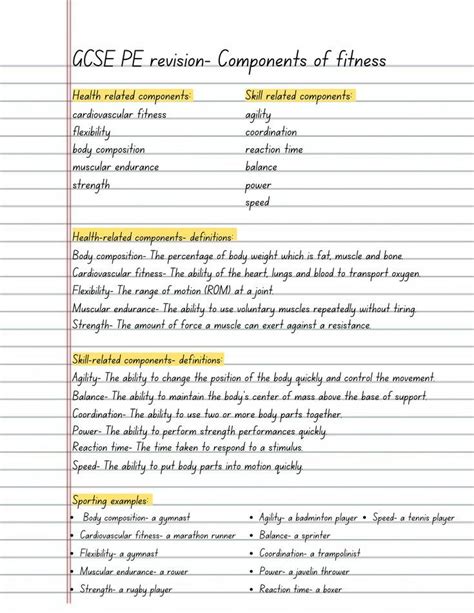 GCSE PE revision- Components of fitness
Health related components:
cardiovascular fitness
flexibility
body composition
muscular endurance
strength
Skill related components:
agility
coordination
reaction time
balance
power
speed
Health-related components- definitions:
Body composition- The percentage of body weight which is fat, muscle and bone.
Cardiovascular fitness- The ability of the heart, lungs and blood to transport oxygen.
Flexibility- The range of motion (ROM) at a joint.
Muscular endurance- The ability to use voluntary muscles repeatedly without tiring.
Strength- The amount of force a muscle can exert against a resistance.
Skill-related components- definitions:
Agility- The ability to change the position of the body quickly and control the movement.
Balance- The ability to maintain the body's center of mass above the base of support.
Coordination- The ability to use two or more body parts together.
Power- The ability to perform strength performances quickly.
Reaction time- The time taken to respond to a stimulus.
Speed- The ability to put body parts into motion quickly.
Sporting examples:
• Body composition- a gymnast
• Cardiovascular fitness- a marathon runner
• Flexibility- a gymnast
• Muscular endurance- a rower
• Strength- a rugby player
• Agility- a badminton player
• Balance- a sprinter
• Coordination- a trampolinist
• Power- a javelin thrower
• Reaction time- a boxer
• Speed- a tennis player